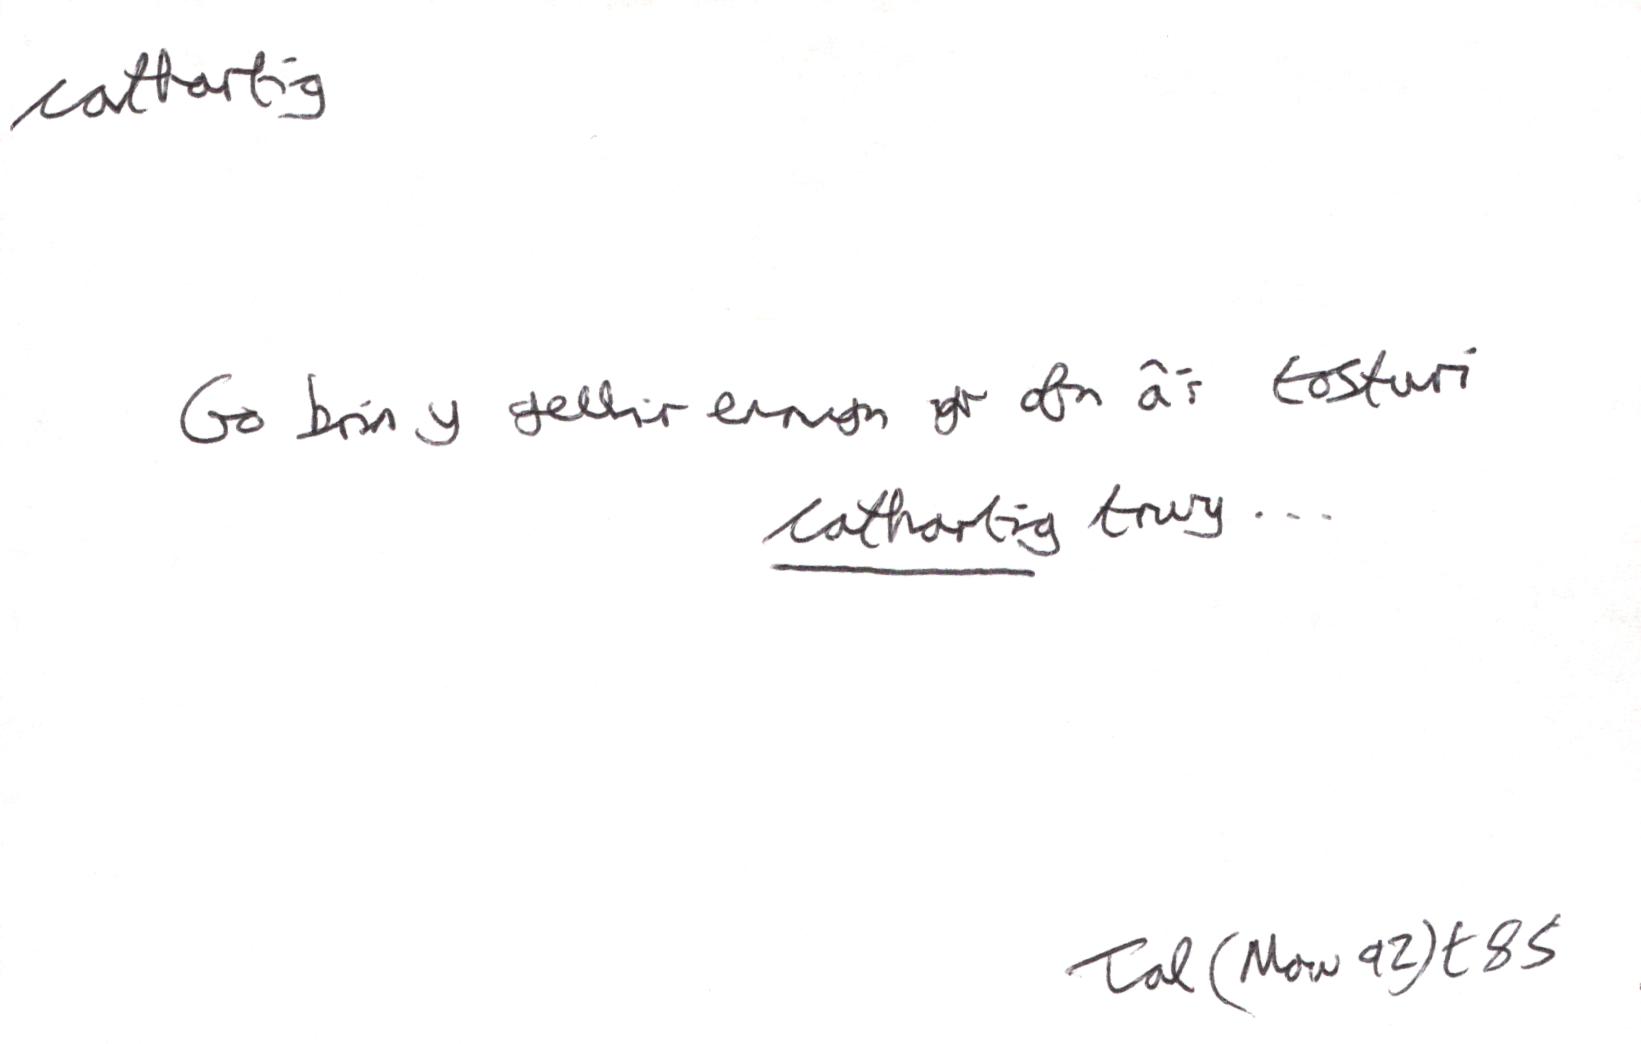 cathartig
Go brin y gellir ennyn yr ofn â'r tosturi
cathartig trwy...
Tal (Maw 92) t85